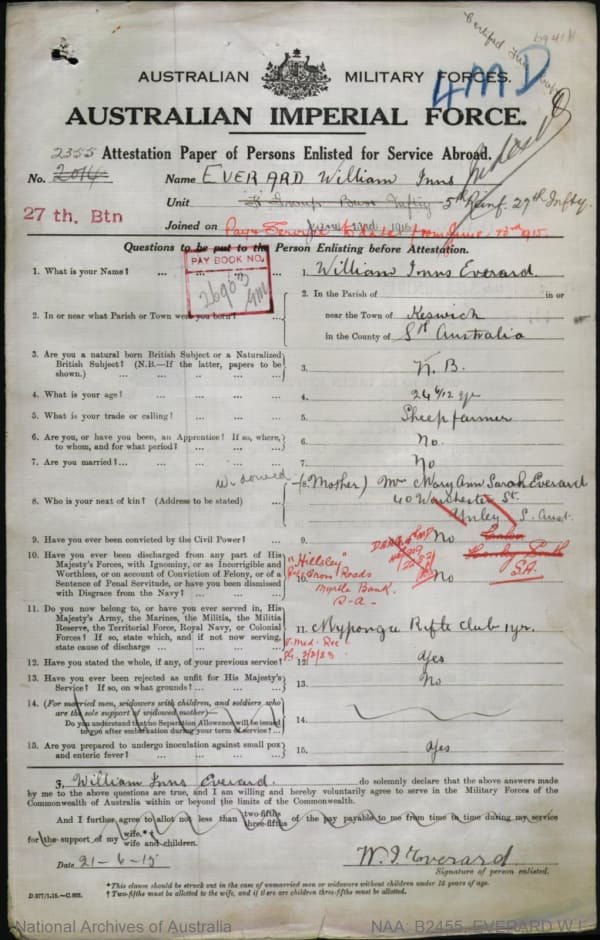 Certified True Copy
AUSTRALIAN MILITARY FORCES.
4MD
AUSTRALIAN IMPERIAL FORCE.
2355 Attestation Paper of Persons Enlisted for Service Abroad.
No. 2014 Name EVERARD William Inns
Unit 5th Reinf. 27th Inftry.
27 th. Btn
Joined on
Questions to be put to the Person Enlisting before Attestation.
PAY BOOK NO.
1. What is your Name? ... ... 1. William Inns Everard.
2. In or near what Parish or Town were you born? ... 2. In the Parish of in or
near the Town of Keswick
in the County of Sth Australia
3. Are you a natural born British Subject or a Naturalized
British Subject? (N.B.—If the latter, papers to be
shown.) ... 3. N. B.
4. What is your age? ... 4. 24 6/12 yrs
5. What is your trade or calling? ... 5. Sheep farmer
6. Are you, or have you been, an Apprentice? If so, where,
to whom, and for what period? ... 6. No.
7. Are you married? ... 7. No
Widowed (Mother) Mrs Mary Ann Sarah Everard
8. Who is your next of kin? (Address to be stated) ... 8. 40 Winchester St.
Unley S. Aust.
9. Have you ever been convicted by the Civil Power? ... 9. No
S.A.
10. Have you ever been discharged from any part of His
Majesty's Forces, with Ignominy, or as Incorrigible and
Worthless, or on account of Conviction of Felony, or of a
Sentence of Penal Servitude, or have you been dismissed
with Disgrace from the Navy? ... 10. No
Cross Roads
Myrtle Bank.
S-A-
11. Do you now belong to, or have you ever served in, His
Majesty's Army, the Marines, the Militia, the Militia
Reserve, the Territorial Force, Royal Navy, or Colonial
Forces? If so, state which, and if not now serving,
state cause of discharge ... 11. Myponga Rifle Club 1yr.
12. Have you stated the whole, if any, of your previous service? 12. Yes
13. Have you ever been rejected as unfit for His Majesty's
Service? If so, on what grounds? ... 13. No
14. (For married men, widowers with children, and soldiers who
are the sole support of widowed mother)—
Do you understand that no Separation Allowance will be issued
to you after embarkation during your term of service? ... 14.
15. Are you prepared to undergo inoculation against small pox
and enteric fever? ... 15. Yes
I, William Inns Everard. do solemnly declare that the above answers made
by me to the above questions are true, and I am willing and hereby voluntarily agree to serve in the Military Forces of the
Commonwealth of Australia within or beyond the limits of the Commonwealth.
And I further agree to allot not less than two-fifths three-fifths of the pay payable to me from time to time during my service
for the support of my wife.*† wife and children.
Date 21-6-15 W. I. Everard.
Signature of person enlisted.
*This clause should be struck out in the case of unmarried men or widowers without children under 18 years of age.
† Two-fifths must be allotted to the wife, and if there are children three-fifths must be allotted.
National Archives of Australia NAA: B2455, EVERARD W I